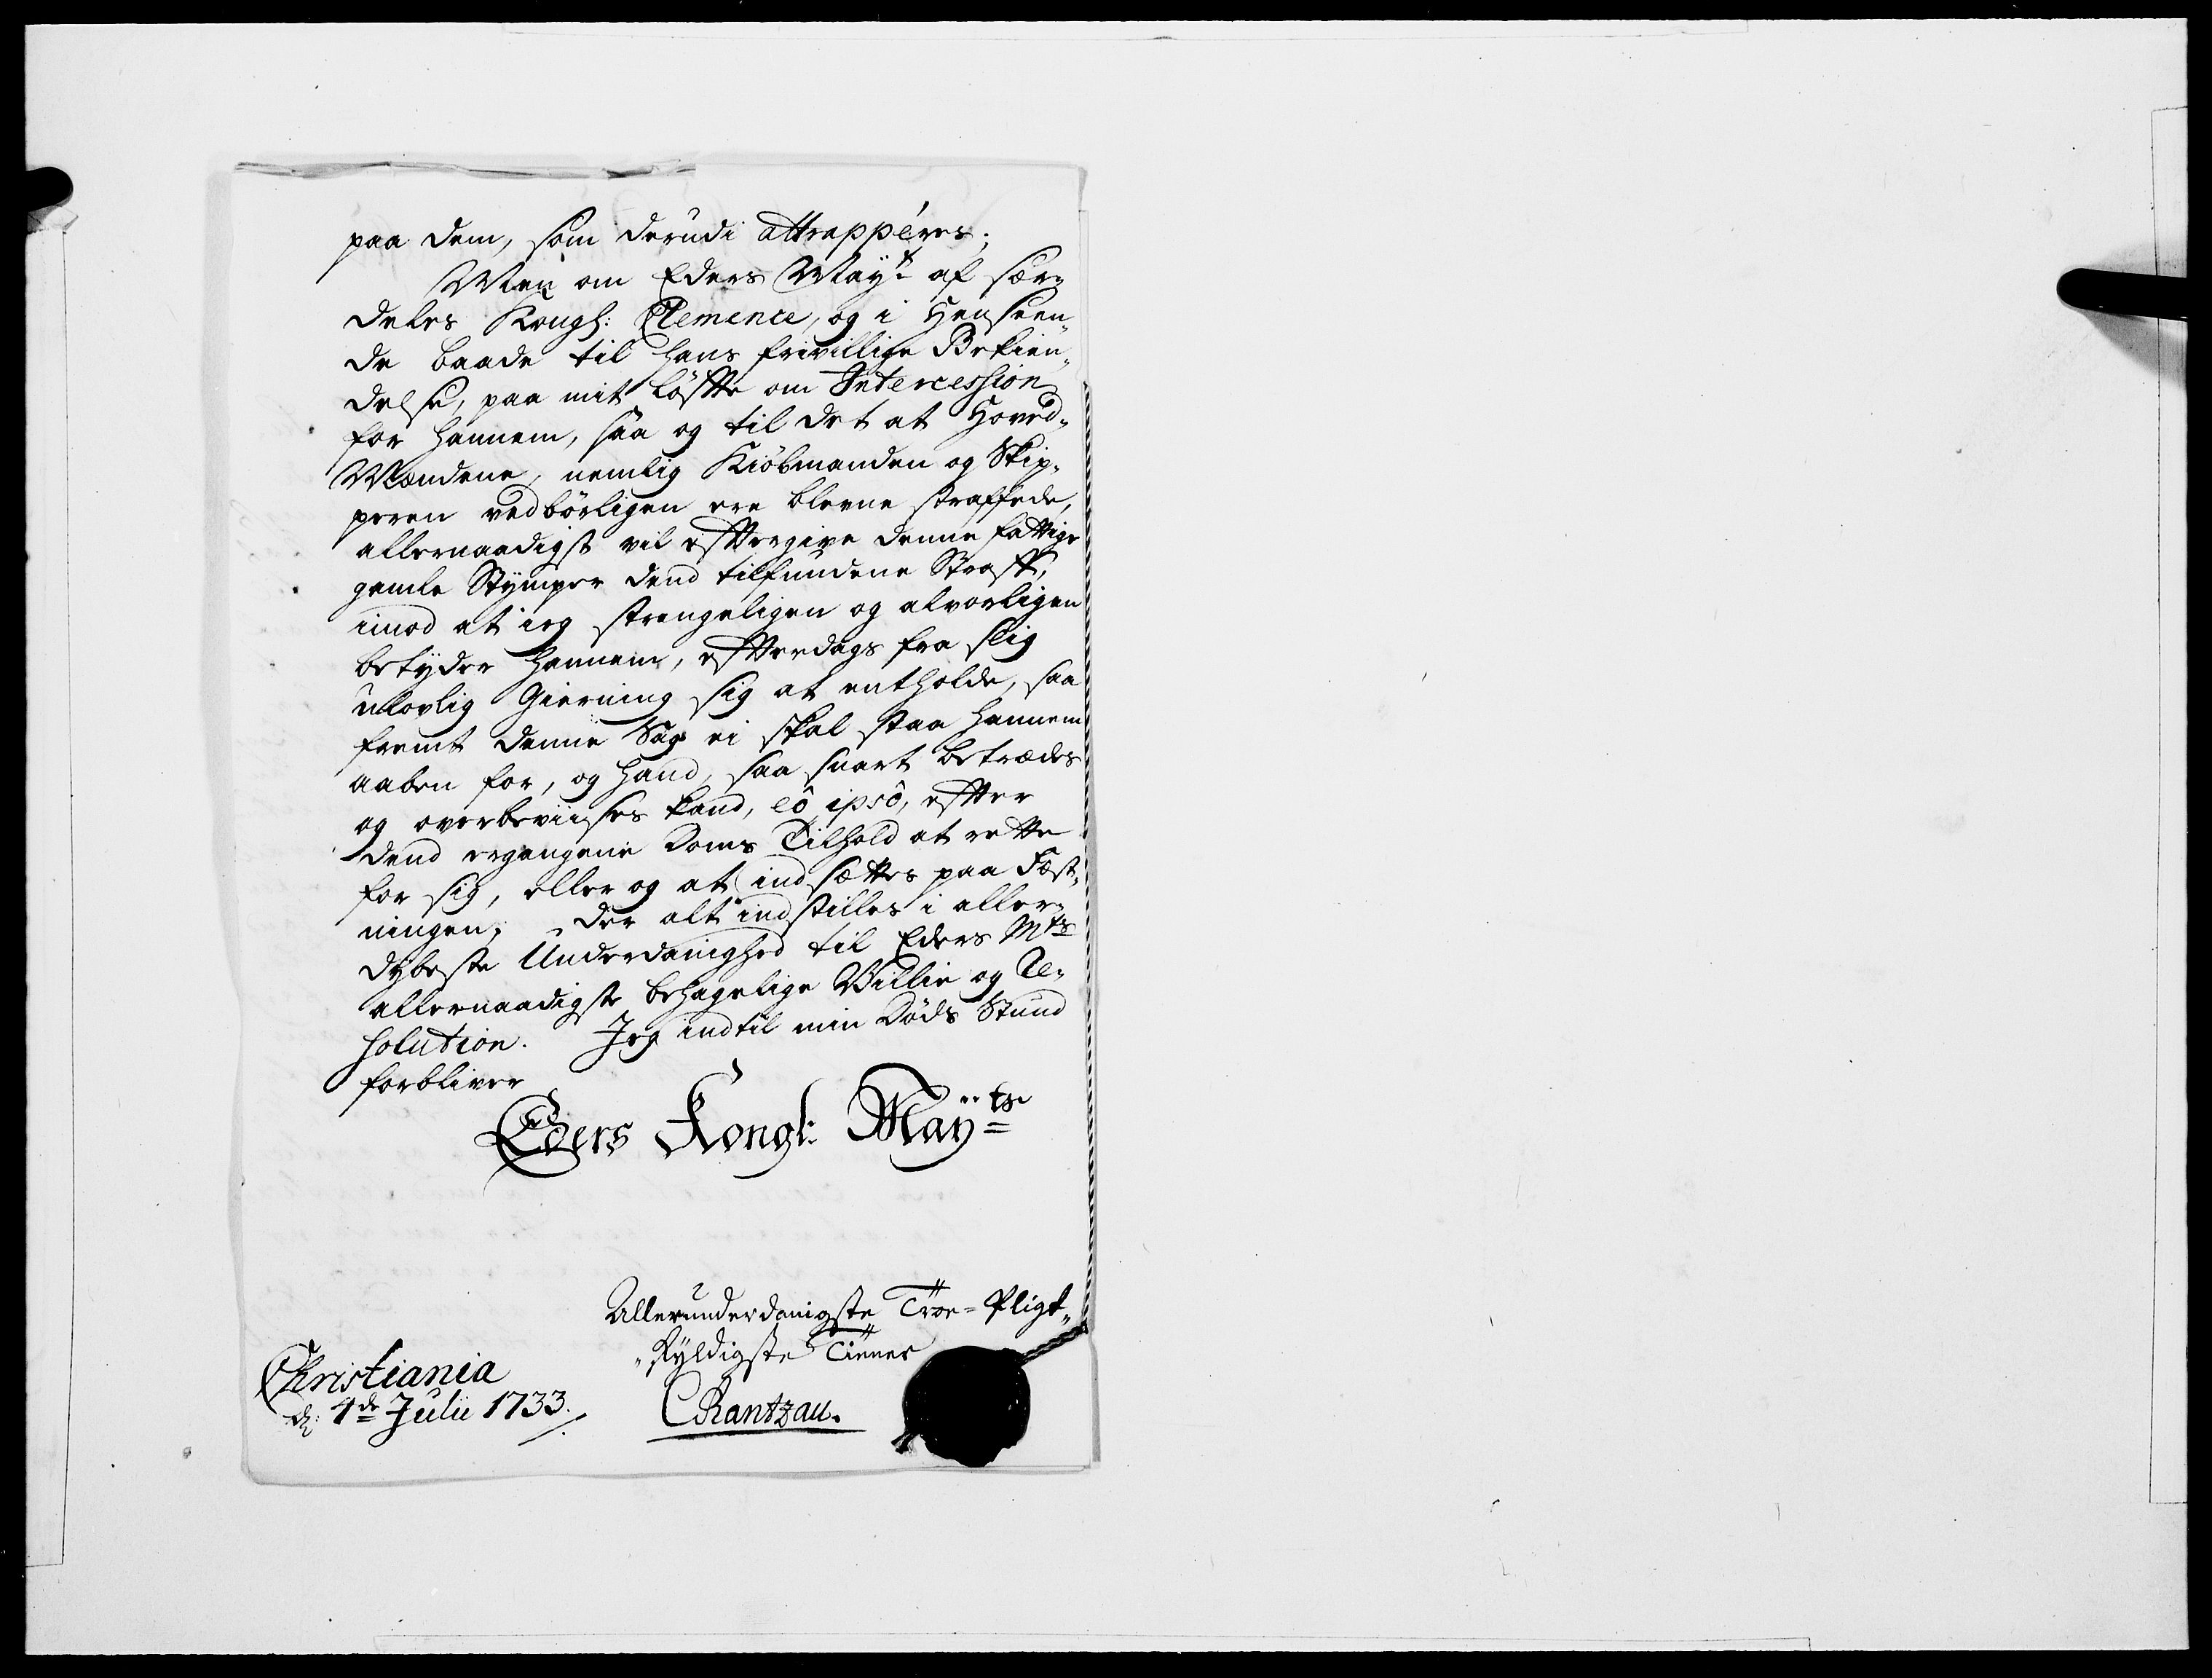 paa dem, som derudi attrapperes;
Men om Eders Mayt af sær-
deles Kongl: Clemence, og i Henseen-
de baade til hans frivillige Bekien-
delse, paa mit Løfte om Intercession
for hannem, saa og til det at Hoved-
Mændene, nemlig Kiøbmanden og Skip-
peren vedbørligen ere blevne straffede,
allernaadigst vil eftergive denne fattige
gamle Stymper dend tilfundene Straff,
imod at ieg strengeligen og alvorligen
betyder hannem, efterdags fra slig
ulovlig Gierning sig at entholde, saa
fremt denne Sag ei skal staa hannem
aaben for, og hand, saa snart betrædes
og overbeviises kand, eô ipsô, efter
dend ergangene Doms Tilhold at rette
for sig, eller og at indsættes paa Fæst-
ningen; der alt indstilles i aller-
dybeste Underdanighed til Eders Mts
allernaadigste behagelige Villie og Re-
solution. Jeg indtil min Døds Stund
forbliver
Eders Kongl: Mayts
Allerunderdanigste Troe-Pligt-
skyldigste Tiener
Christiania
d: 4de Julii 1733.
CRantzau.